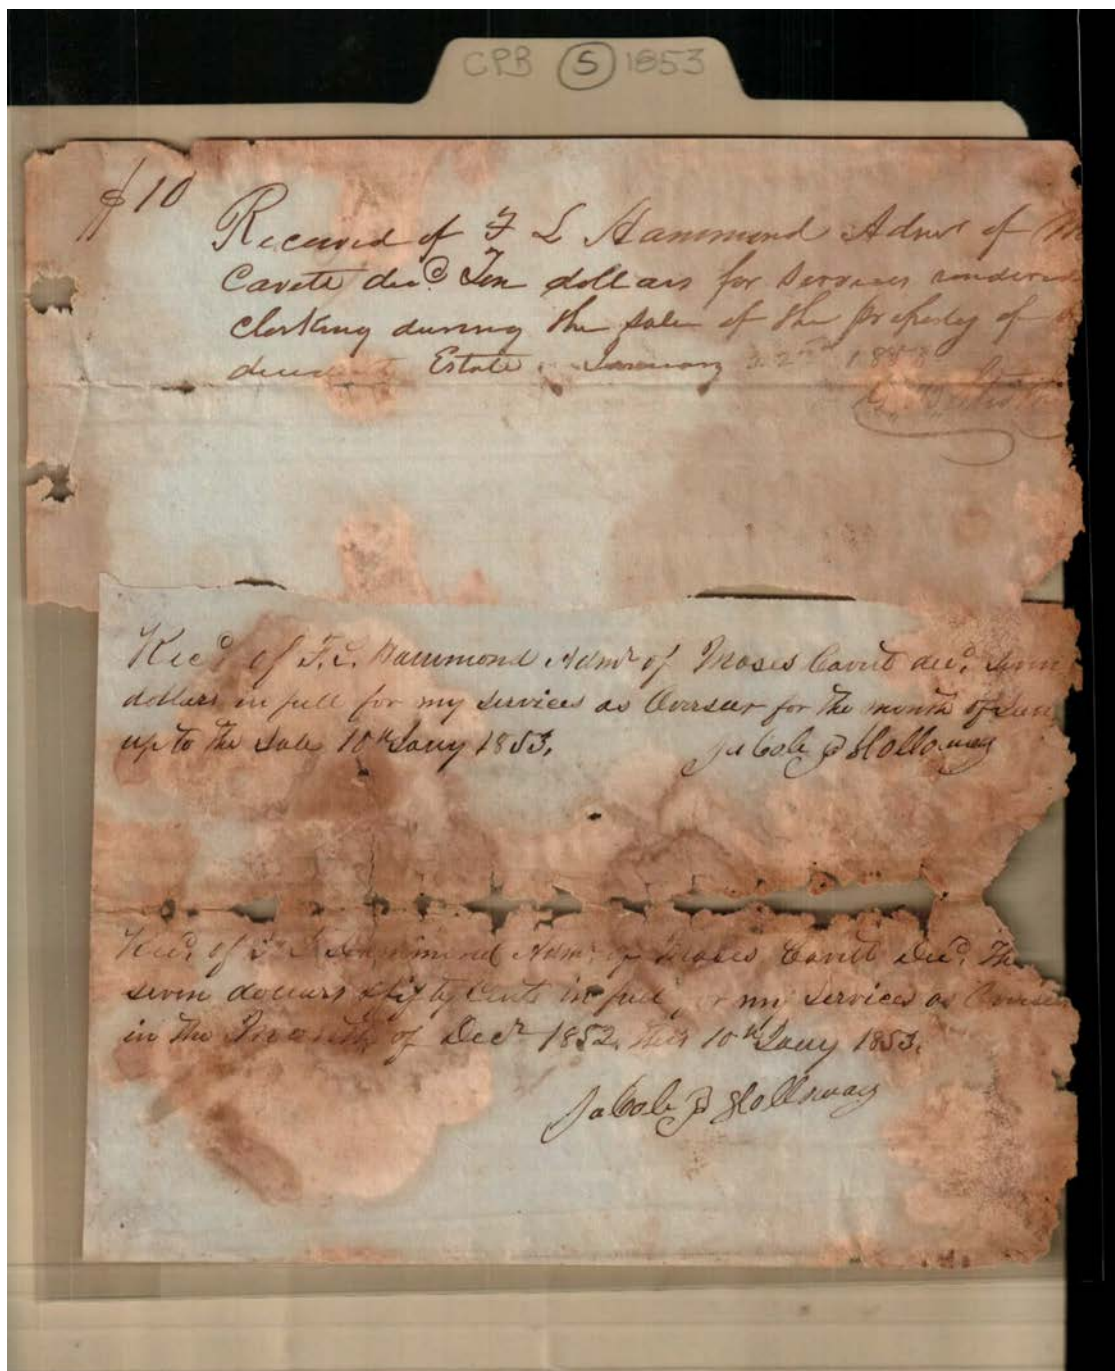 CPB (5) 1853
$10
Received of F L Hammond Admr of
Cavete decd Ten dollars for services
clerking during the sale of the property of
Estate January 1853
Recd of F. L. Hammond Admr of Moses Cavet decd. seven
dollars in full for my services as Overseer for the month of
up to the sale 10th Jany 1853.
Jacob P Holloway
Recd. of Hammond Admr of Moses Cavet Decd.
seven dollars & fifty cents in full my services as
in the Month of Decr 1852. this 10th Jany 1853.
Jacob P Holloway